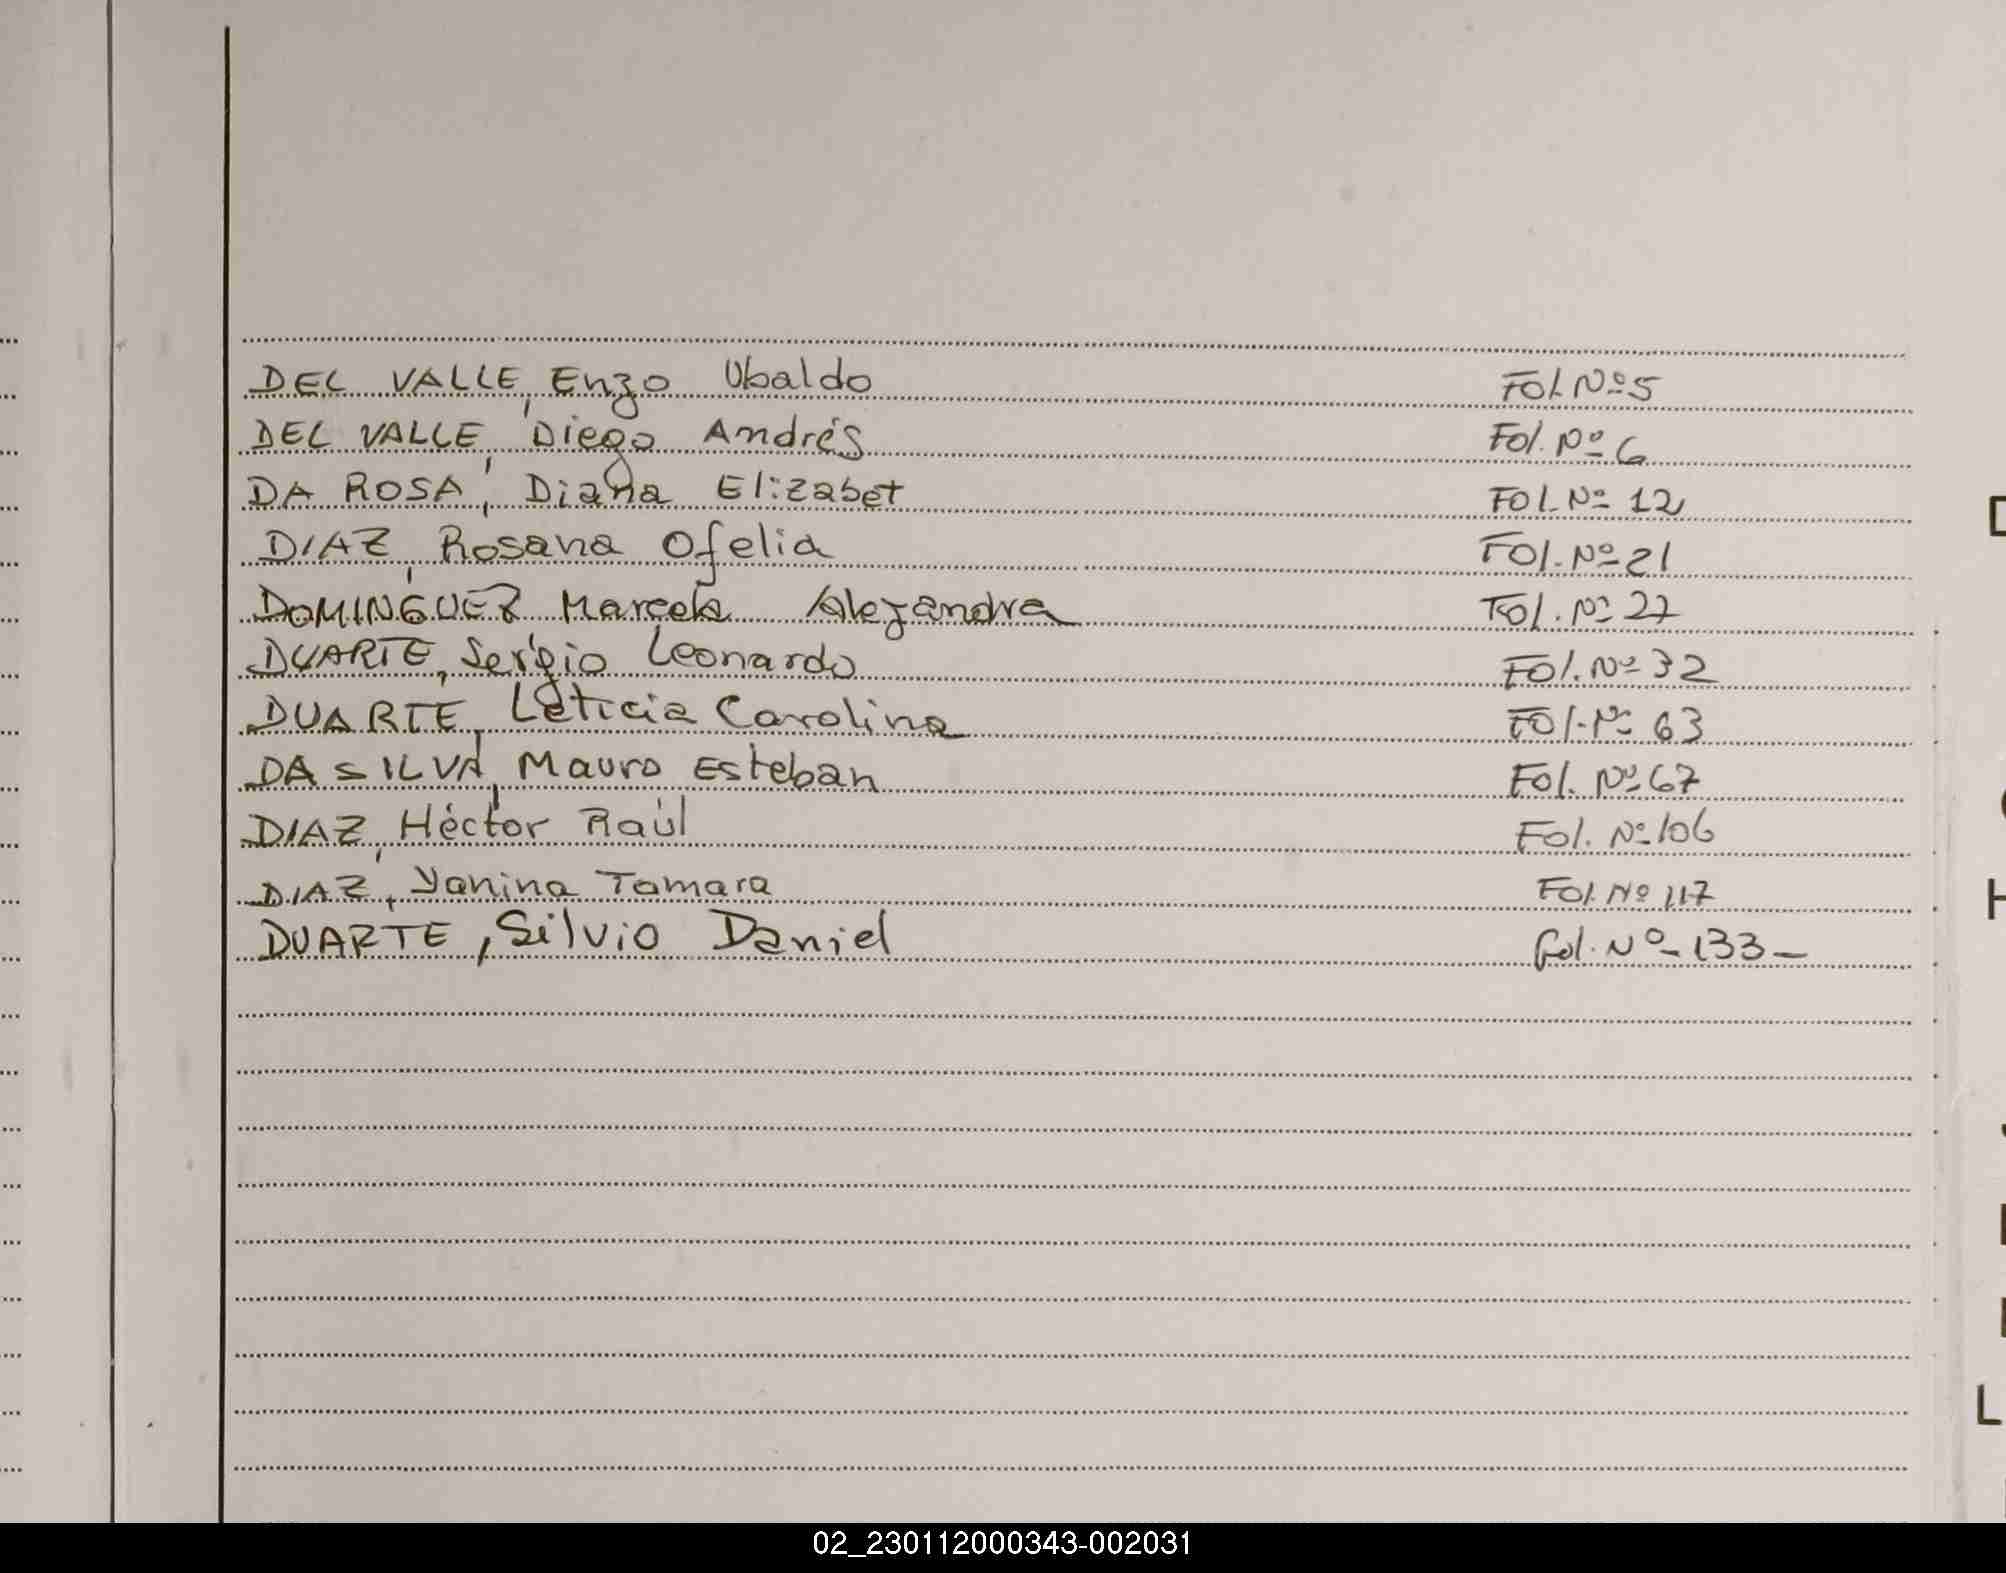 DEL VALLE, Enzo Ubaldo Fol. Nº 5
DEL VALLE, Diego Andrés Fol. Nº 6
DA ROSA, Diana Elizabet Fol. Nº 12
DIAZ, Rosana Ofelia Fol. Nº 21
DOMINGUEZ Marcela Alejandra Fol. Nº 27
DUARTE, Sergio Leonardo Fol. Nº 32
DUARTE, Leticia Carolina Fol. Nº 63
DA SILVA, Mauro Esteban Fol. Nº 67
DIAZ, Héctor Raúl Fol. Nº 106
DIAZ, Yanina Tamara Fol. Nº 117
DUARTE, Silvio Daniel Fol. Nº 133
02_230112000343-002031